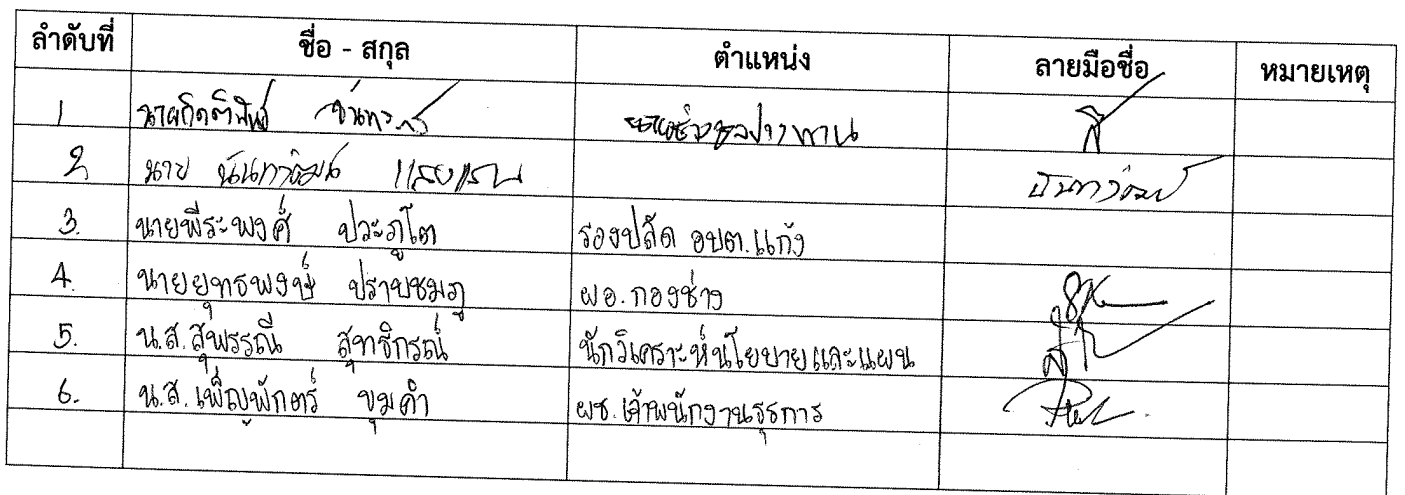 ลำดับที่ ชื่อ - สกุล ตำแหน่ง ลายมือชื่อ หมายเหตุ
1 นายกิตติพันธ์ นายช่างชลประทาน
2 นาย นันทวัฒน์ แสงแสน นันทวัฒน์
3. นายพีระพงศ์ ประภูโต รองปลัด อบต.แก้ง
4. นายยุทธพงษ์ ปราบชมภู ผอ.กองช่าง
5. น.ส.สุพรรณี สุทธิกรณ์ นักวิเคราะห์นโยบายและแผน
6. น.ส.เพ็ญพักตร์ ขุมคำ ผช.เจ้าพนักงานธุรการ